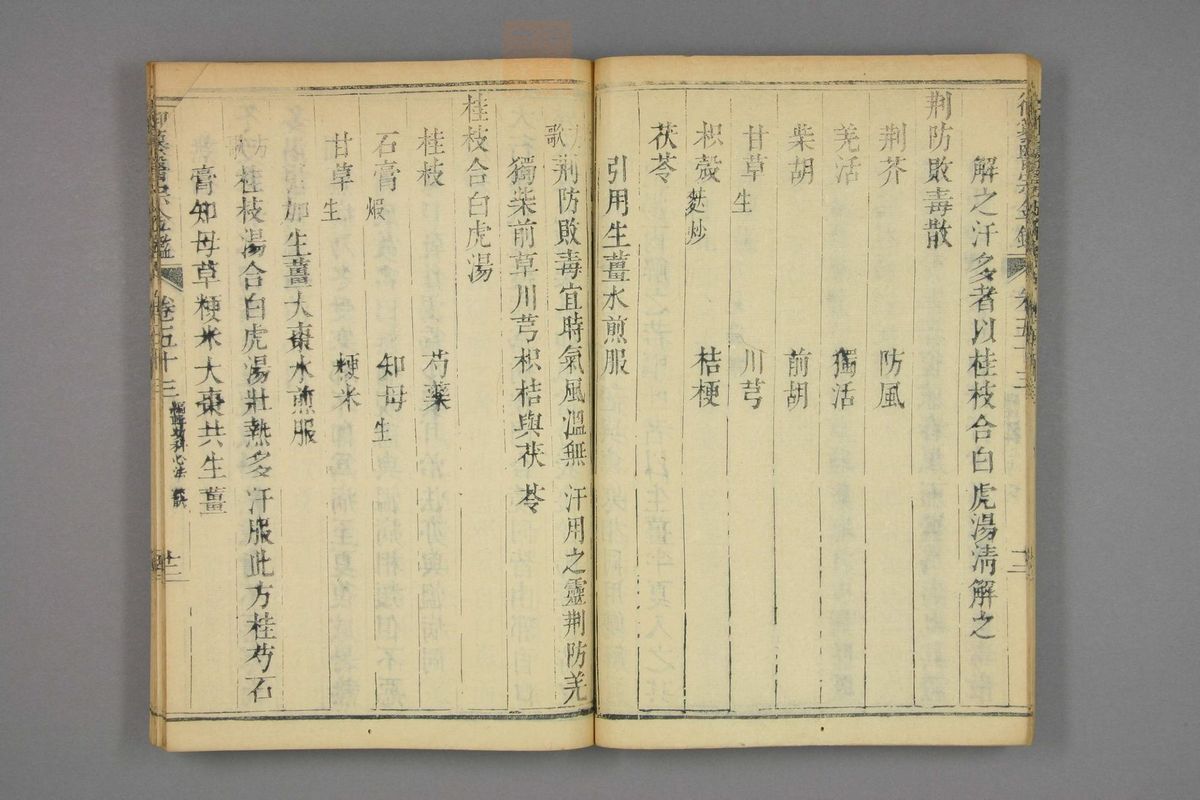 解之汗多者以桂枝合白虎湯清解之
荆防敗毒散
荆芥　防風
羌活　獨活
柴胡　前胡
甘草生　川芎
枳殼麩炒　桔梗
茯苓
引用生薑水煎服
歌　荆防敗毒宜時氣風溫無汗用之靈荆防羌
獨柴前草川芎枳桔與茯苓
桂枝合白虎湯
桂枝　芍藥
石膏煅　知母生
甘草生　粳米
加生薑大棗水煎服
方　桂枝湯合白虎湯壯熱多汗服此方桂芍石
膏知母草粳米大棗共生薑
御纂醫宗金鑑　卷五十三